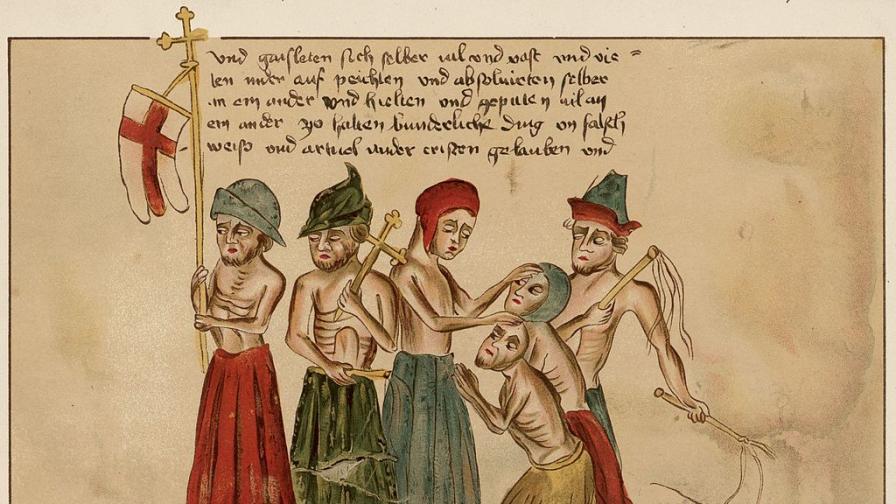 vnd gaisleten sich selber vil vnd vast vnd vie =
len nider auf peichten vnd absoluirten selber
an ein ander vnd hielten vnd geputen vil an
ein ander zo halten bunderliche ding vn falsch
weisz vnd artucl wider cristen gelauben vnd